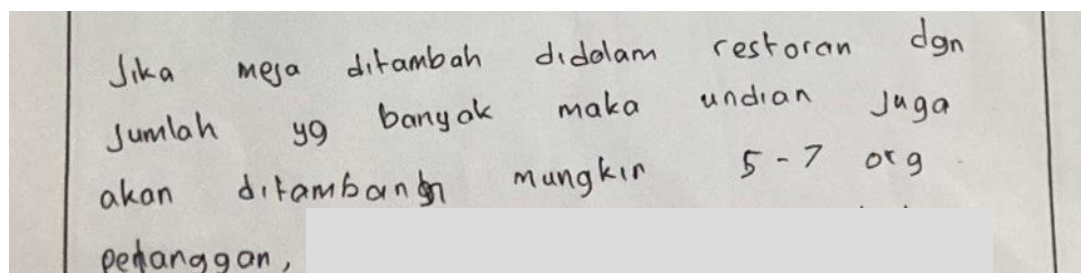 Jika meja ditambah didalam restoran dgn
Jumlah yg banyak maka undian Juga
akan ditambah mungkin 5-7 org
pelanggan,